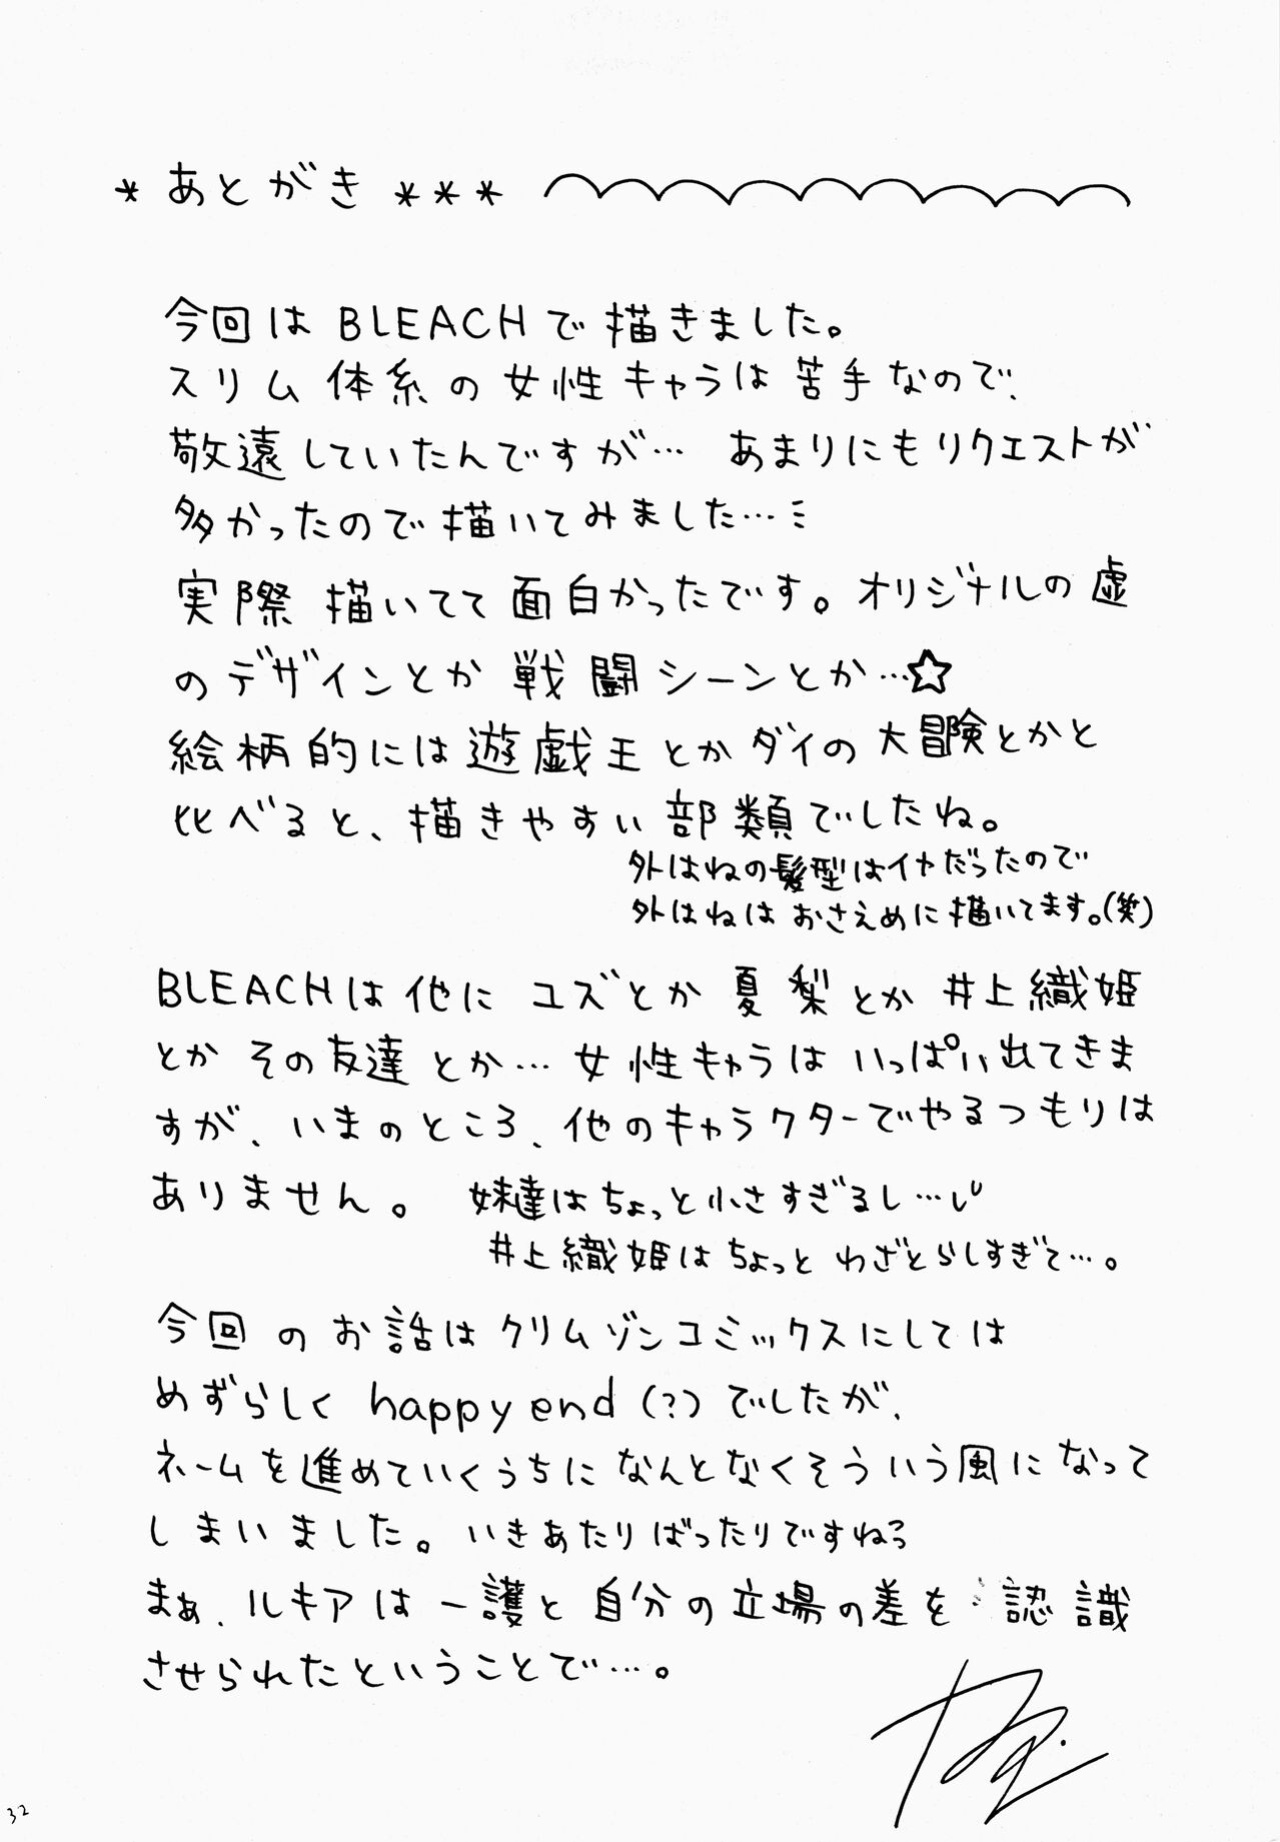 *あとがき***
今回はBLEACHで描きました。
スリム体系の女性キャラは苦手なので、
敬遠していたんですが… あまりにもリクエストが
多かったので描いてみました…
実際描いてて面白かったです。オリジナルの虚
のデザインとか戦闘シーンとか…☆
絵柄的には遊戯王とかダイの大冒険とかと
比べると、描きやすい部類でしたね。
外はねの髪型はイヤだったので
外はねはおさえめに描いてます。(笑)
BLEACHは他にユズとか夏梨とか井上織姫
とかその友達とか…女性キャラはいっぱい出てきま
すが、いまのところ、他のキャラクターでやるつもりは
ありません。 妹達はちょっと小さすぎるし…
井上織姫はちょっとわざとらしすぎて…。
今回のお話はクリムゾンコミックスにしては
めずらしくhappy end(?)でしたが、
ネームを進めていくうちになんとなくそういう風になって
しまいました。いきあたりばったりですねろ
まぁ、ルキアは一護と自分の立場の差を認識
させられたということで…。
32